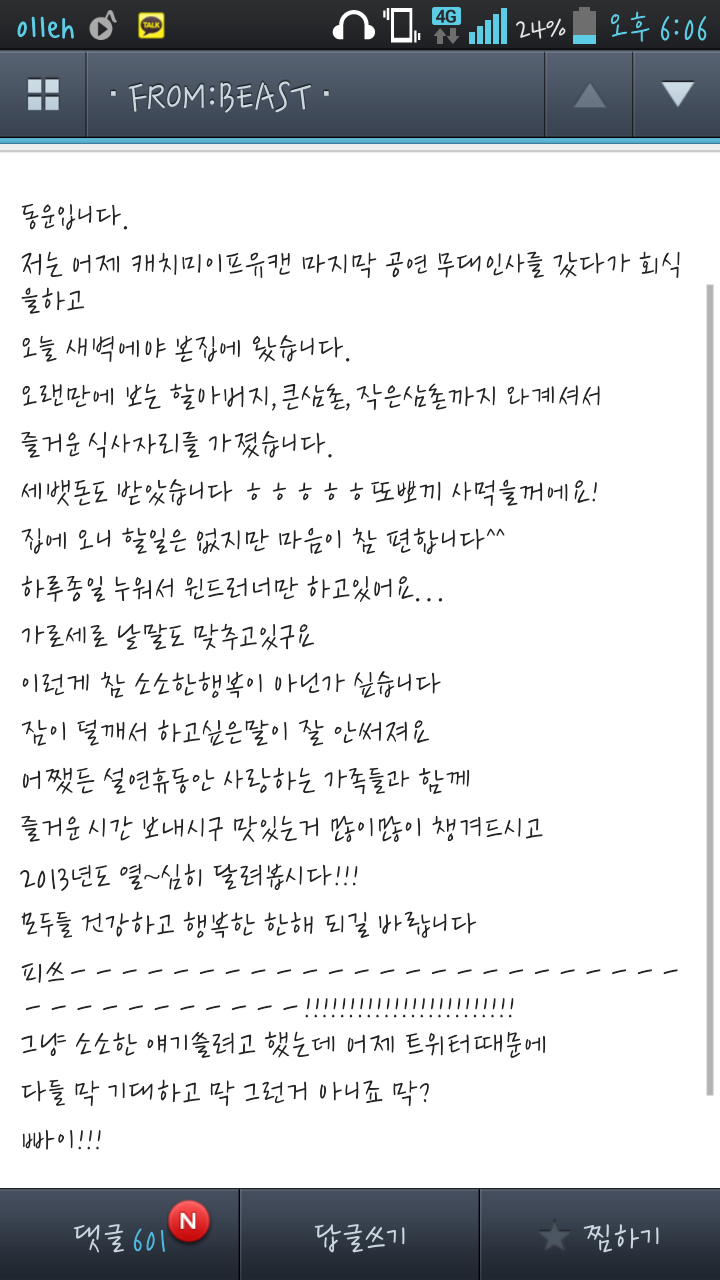 olleh TALK 4G 24% 오후 6:06
· FROM:BEAST ·
동운입니다.
저는 어제 캐치미이프유캔 마지막 공연 무대인사를 갔다가 회식
을하고
오늘 새벽에야 본집에 왔습니다.
오랜만에 보는 할아버지,큰삼촌,작은삼촌까지 와계셔서
즐거운 식사자리를 가졌습니다.
세뱃돈도 받았습니다 ㅎㅎㅎㅎㅎ또뽀끼 사먹을꺼에요!
집에 오니 할일은 없지만 마음이 참 편합니다^^
하루종일 누워서 윈드러너만 하고있어요...
가로세로 낱말도 맞추고있구요
이런게 참 소소한행복이 아닌가 싶습니다
잠이 덜깨서 하고싶은말이 잘 안써져요
어쨌든 설연휴동안 사랑하는 가족들과 함께
즐거운 시간 보내시구 맛있는거 많이많이 챙겨드시고
2013년도 열~심히 달려봅시다!!!
모두들 건강하고 행복한 한해 되길 바랍니다
피쓰ㅡㅡㅡㅡㅡㅡㅡㅡㅡㅡㅡㅡㅡㅡㅡㅡㅡㅡㅡㅡㅡㅡㅡㅡ
ㅡㅡㅡㅡㅡㅡㅡㅡㅡㅡㅡ!!!!!!!!!!!!!!!!!!!!!!!!
그냥 소소한 얘기쓸려고 했는데 어제 트위터때문에
다들 막 기대하고 막 그런거 아니죠 막?
빠이!!!
댓글 601 N 답글쓰기 찜하기